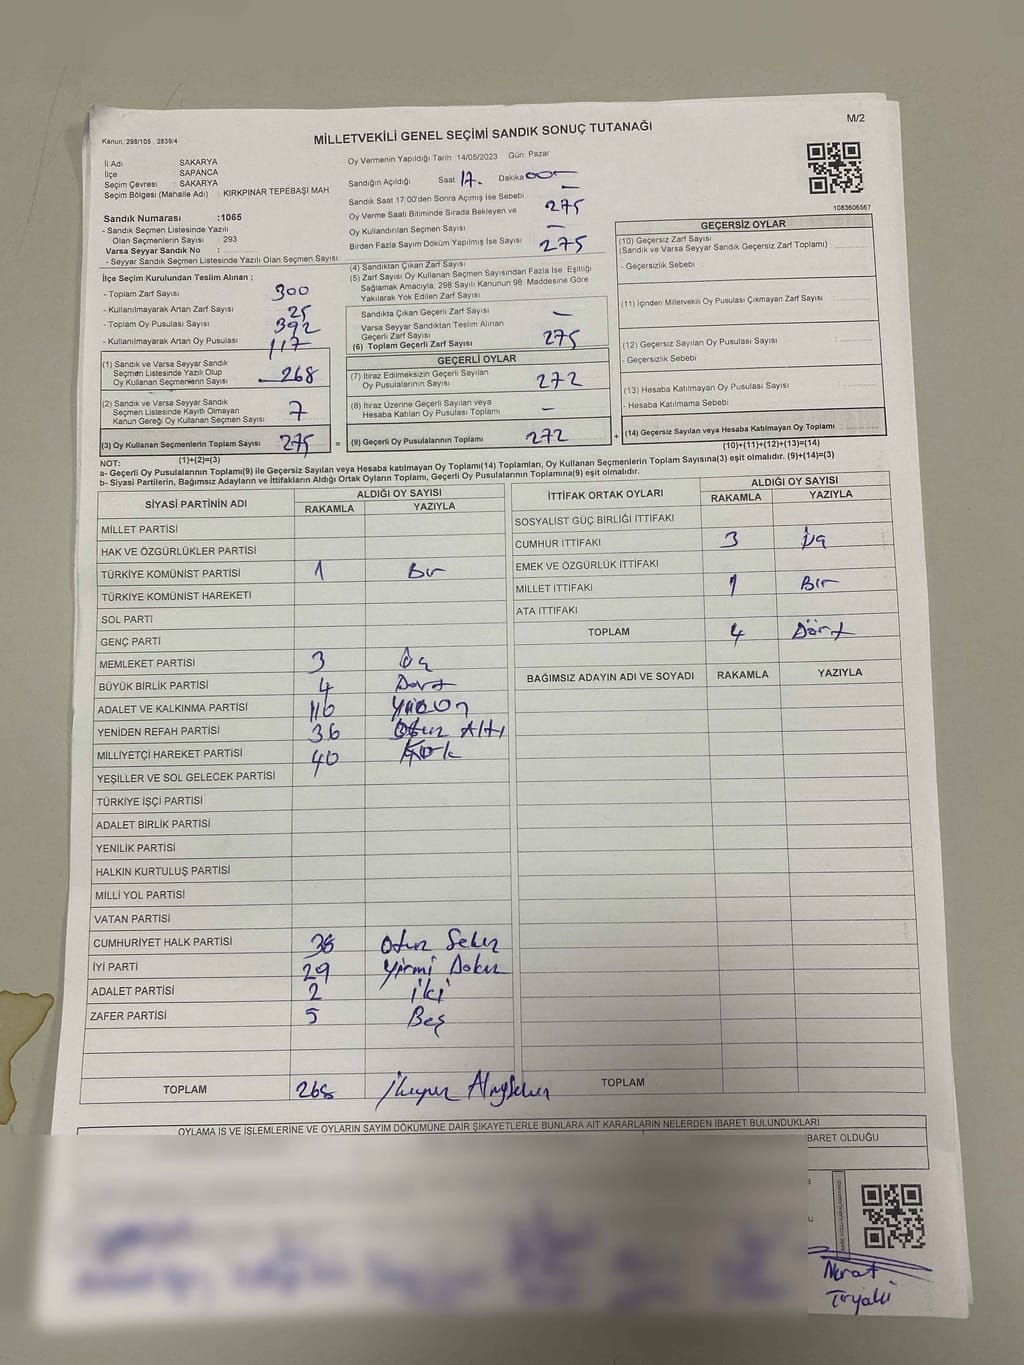 M/2
Kanun: 298/105 2839/4
MİLLETVEKİLİ GENEL SEÇİMİ SANDIK SONUÇ TUTANAĞI
İl Adı : SAKARYA
İlçe : SAPANCA
Seçim Çevresi : SAKARYA
Seçim Bölgesi (Mahalle Adı) : KIRKPINAR TEPEBAŞI MAH.
Sandık Numarası :1065
- Sandık Seçmen Listesinde Yazılı
Olan Seçmenlerin Sayısı : 293
Varsa Seyyar Sandık No :
- Seyyar Sandık Seçmen Listesinde Yazılı Olan Seçmen Sayısı:
Oy Vermenin Yapıldığı Tarih 14/05/2023 Gün: Pazar
Sandığın Açıldığı Saat 17. Dakika 00
Sandık Saat 17:00'den Sonra Açımış İse Sebebi : —
Oy Verme Saati Bitiminde Sırada Bekleyen ve 275
Oy Kullandırılan Seçmen Sayısı —
Birden Fazla Sayım Döküm Yapılmış İse Sayısı 275
1083606567
İlçe Seçim Kurulundan Teslim Alınan ;
- Toplam Zarf Sayısı 300
- Kullanılmayarak Artan Zarf Sayısı 25
- Toplam Oy Pusulası Sayısı 392
- Kullanılmayarak Artan Oy Pusulası 117
(1) Sandık ve Varsa Seyyar Sandık
Seçmen Listesinde Yazılı Olup
Oy Kullanan Seçmenlerin Sayısı 268
(2) Sandık ve Varsa Seyyar Sandık
Seçmen Listesinde Kayıtlı Olmayan
Kanun Gereği Oy Kullanan Seçmen Sayısı 7
(3) Oy Kullanan Seçmenlerin Toplam Sayısı 275 =
(1)+(2)=(3)
(4) Sandıktan Çıkan Zarf Sayısı
(5) Zarf Sayısı Oy Kullanan Seçmen Sayısından Fazla İse, Eşitliği
Sağlamak Amacıyla; 298 Sayılı Kanunun 98. Maddesine Göre
Yakılarak Yok Edilen Zarf Sayısı
Sandıkta Çıkan Geçerli Zarf Sayısı —
Varsa Seyyar Sandıktan Teslim Alınan
Geçerli Zarf Sayısı
(6) Toplam Geçerli Zarf Sayısı 275
GEÇERLİ OYLAR
(7) İtiraz Edilmeksizin Geçerli Sayılan
Oy Pusulalarının Sayısı 272
(8) İtiraz Üzerine Geçerli Sayılan veya
Hesaba Katılan Oy Pusulası Toplamı —
(9) Geçerli Oy Pusulalarının Toplamı 272 +
GEÇERSİZ OYLAR
(10) Geçersiz Zarf Sayısı
(Sandık ve Varsa Seyyar Sandık Geçersiz Zarf Toplamı) :
- Geçersizlik Sebebi :
(11) İçinden Milletvekili Oy Pusulası Çıkmayan Zarf Sayısı :
(12) Geçersiz Sayılan Oy Pusulası Sayısı :
- Geçersizlik Sebebi :
(13) Hesaba Katılmayan Oy Pusulası Sayısı :
- Hesaba Katılmama Sebebi :
(14) Geçersiz Sayılan veya Hesaba Katılmayan Oy Toplamı :
(10)+(11)+(12)+(13)=(14)
NOT:
a- Geçerli Oy Pusulası Toplamı(9) ile Geçersiz Sayılan veya Hesaba katılmayan Oy Toplamı(14) Toplamları, Oy Kullanan Seçmenlerin Toplam Sayısına(3) eşit olmalıdır. (9)+(14)=(3)
b- Siyasi Partilerin, Bağımsız Adayların ve İttifakların Aldığı Ortak Oyların Toplamı, Geçerli Oy Pusulalarının Toplamına(9) eşit olmalıdır.
SİYASİ PARTİNİN ADI ALDIĞI OY SAYISI
RAKAMLA YAZIYLA
MİLLET PARTİSİ
HAK VE ÖZGÜRLÜKLER PARTİSİ
TÜRKİYE KOMÜNİST PARTİSİ 1 Bir
TÜRKİYE KOMÜNİST HAREKETİ
SOL PARTİ
GENÇ PARTİ
MEMLEKET PARTİSİ 3 Üç
BÜYÜK BİRLİK PARTİSİ 4 Dört
ADALET VE KALKINMA PARTİSİ 110 Yüzon
YENİDEN REFAH PARTİSİ 36 Otuz Altı
MİLLİYETÇİ HAREKET PARTİSİ 40 Kırk
YEŞİLLER VE SOL GELECEK PARTİSİ
TÜRKİYE İŞÇİ PARTİSİ
ADALET BİRLİK PARTİSİ
YENİLİK PARTİSİ
HALKIN KURTULUŞ PARTİSİ
MİLLİ YOL PARTİSİ
VATAN PARTİSİ
CUMHURİYET HALK PARTİSİ 38 Otuz Sekiz
İYİ PARTİ 29 Yirmi Dokuz
ADALET PARTİSİ 2 iki
ZAFER PARTİSİ 5 Beş
TOPLAM 268 İkiyüz Altmışsekiz
İTTİFAK ORTAK OYLARI ALDIĞI OY SAYISI
RAKAMLA YAZIYLA
SOSYALİST GÜÇ BİRLİĞİ İTTİFAKI
CUMHUR İTTİFAKI 3 Üç
EMEK VE ÖZGÜRLÜK İTTİFAKI
MİLLET İTTİFAKI 1 Bir
ATA İTTİFAKI
TOPLAM 4 Dört
BAĞIMSIZ ADAYIN ADI VE SOYADI RAKAMLA YAZIYLA
TOPLAM
OYLAMA İŞ VE İŞLEMLERİNE VE OYLARIN SAYIM DÖKÜMÜNE DAİR ŞİKAYETLERLE BUNLARA AİT KARARLARIN NELERDEN İBARET BULUNDUKLARI
BARET OLDUĞU
Murat
Tiryaki